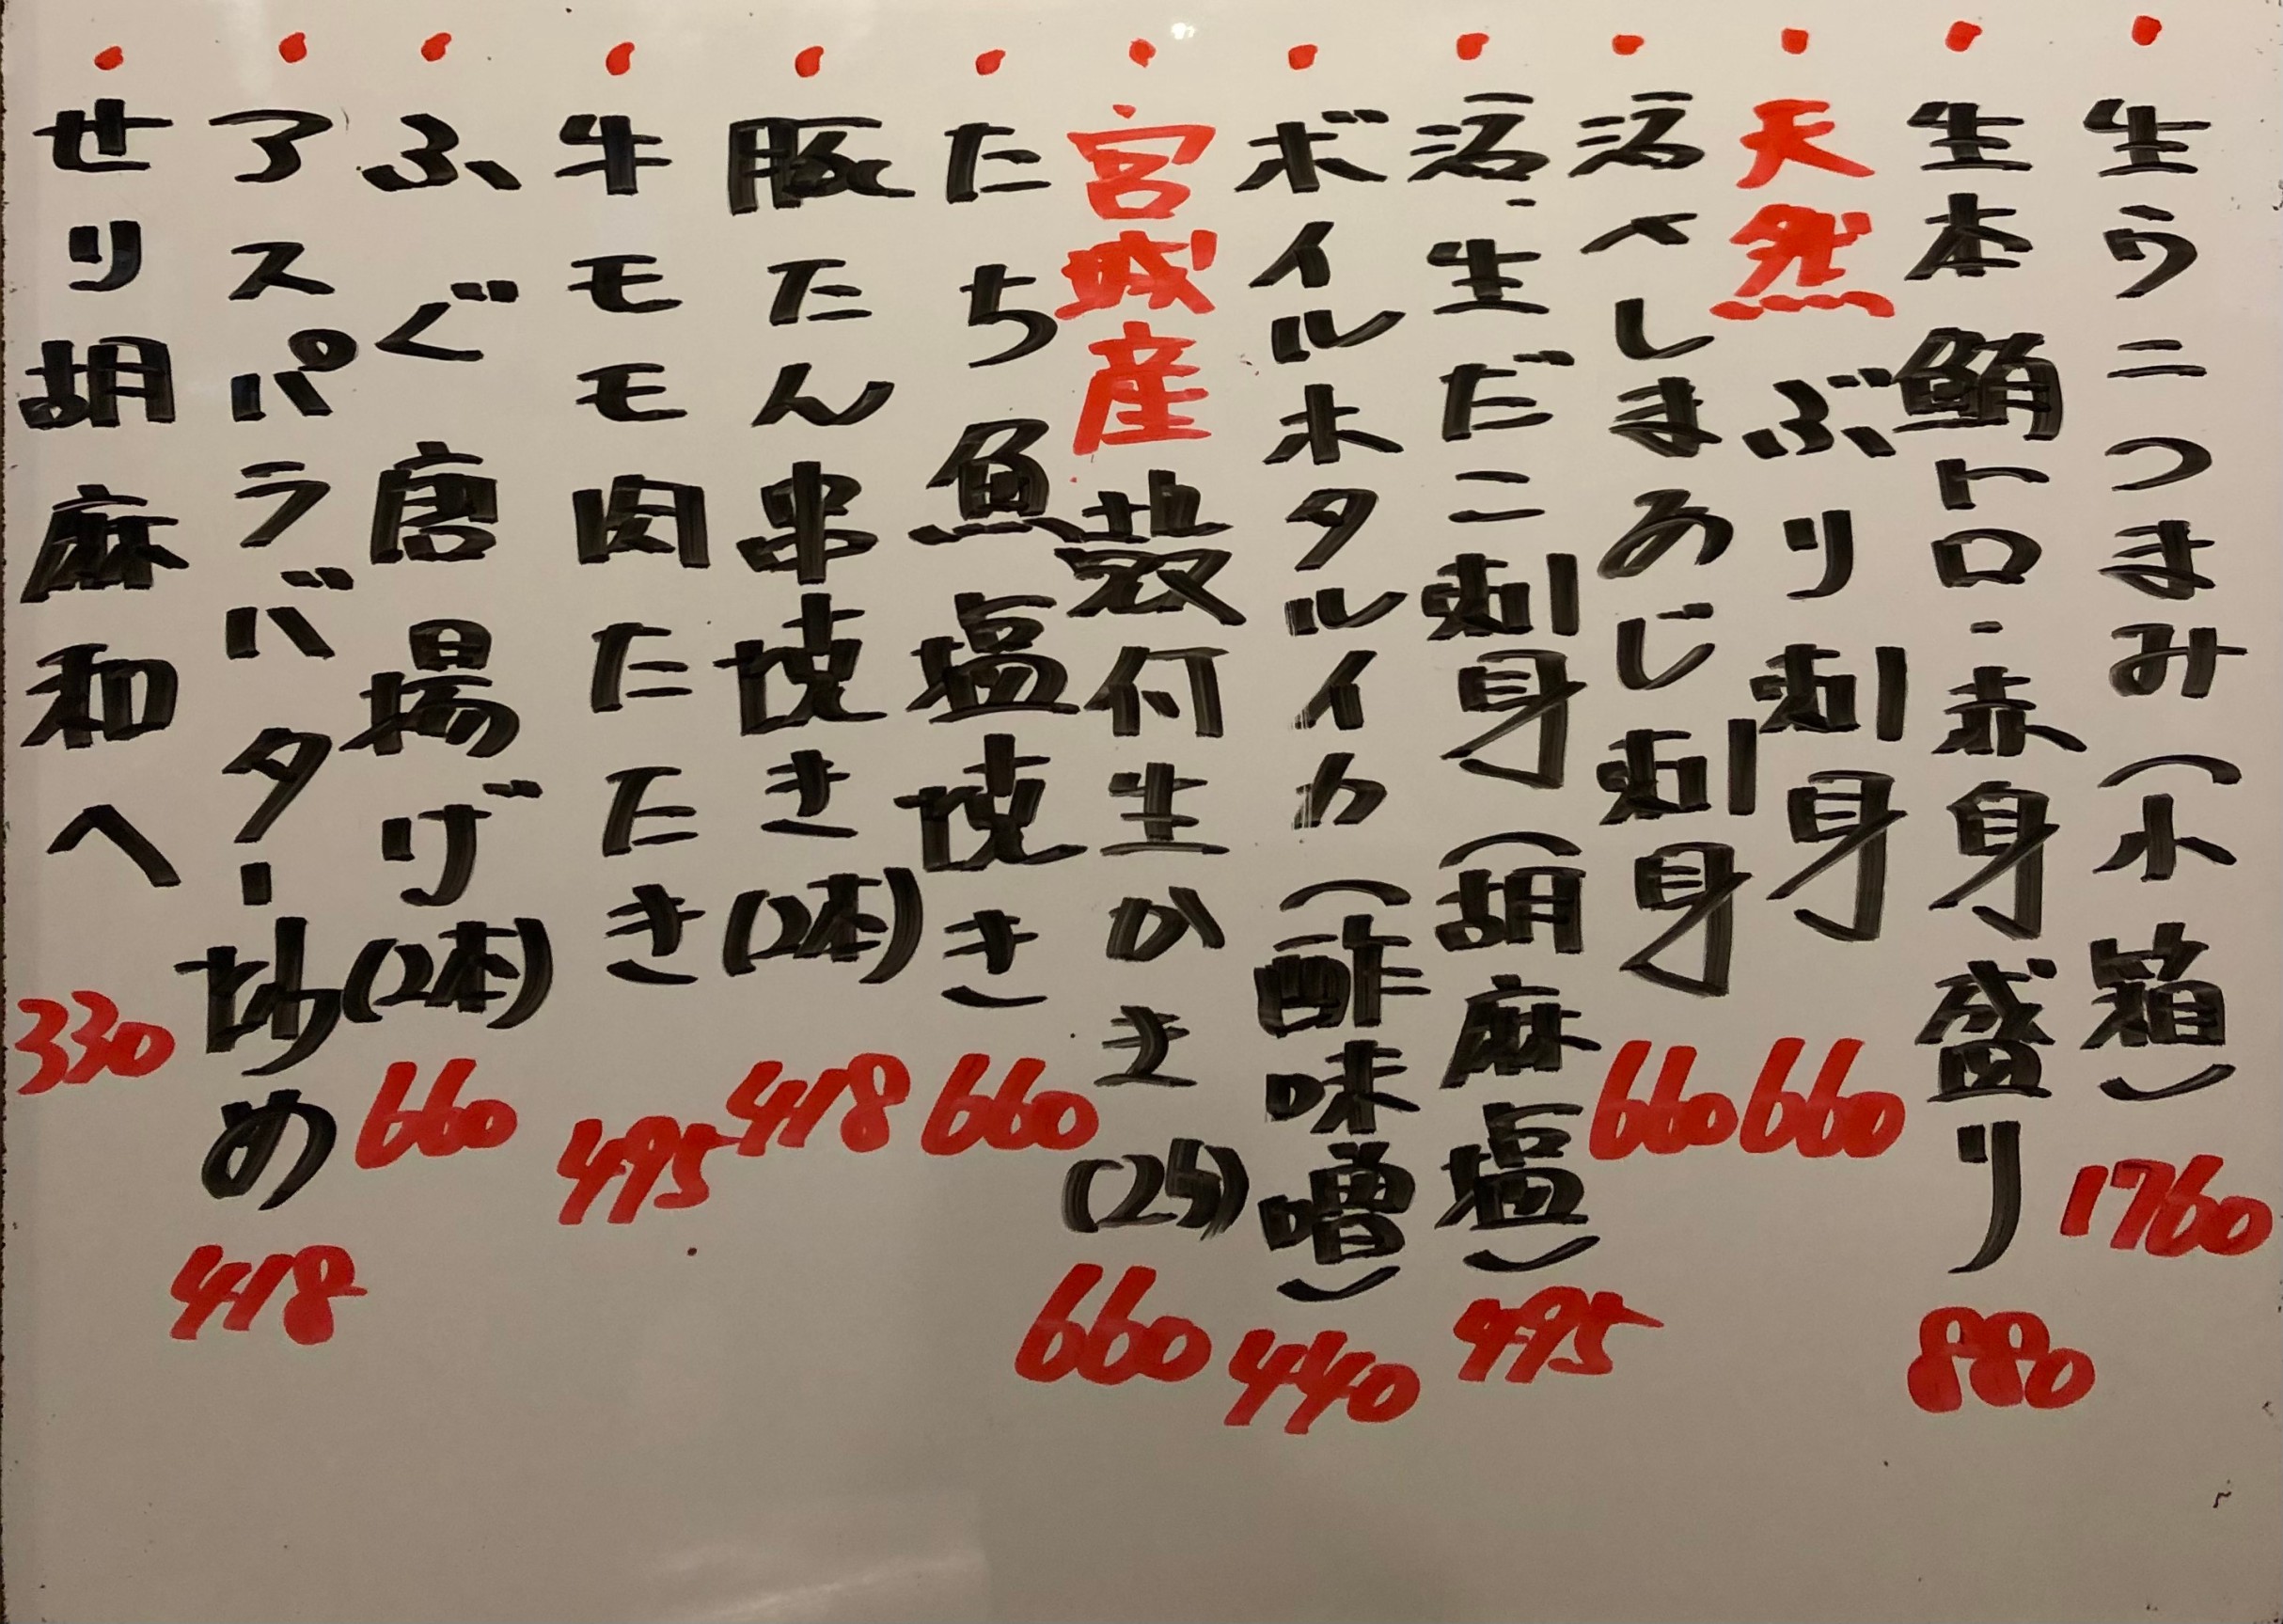 ・生ウニつまみ(小箱) 1760
・生本鮪トロ・赤身盛り 880
・天然ぶり刺身 660
・活〆しまあじ刺身 660
・活・生だこ刺身(胡麻塩) 495
・ボイルホタルイカ(酢味噌) 440
・宮城産殻付生かき(2ヶ) 660
・たち魚塩焼き 660
・豚たん串焼き(2本) 418
・牛モモ肉たたき 495
・ふぐ唐揚げ(2本) 660
・アスパラバター炒め 418
・せり胡麻和へ 330